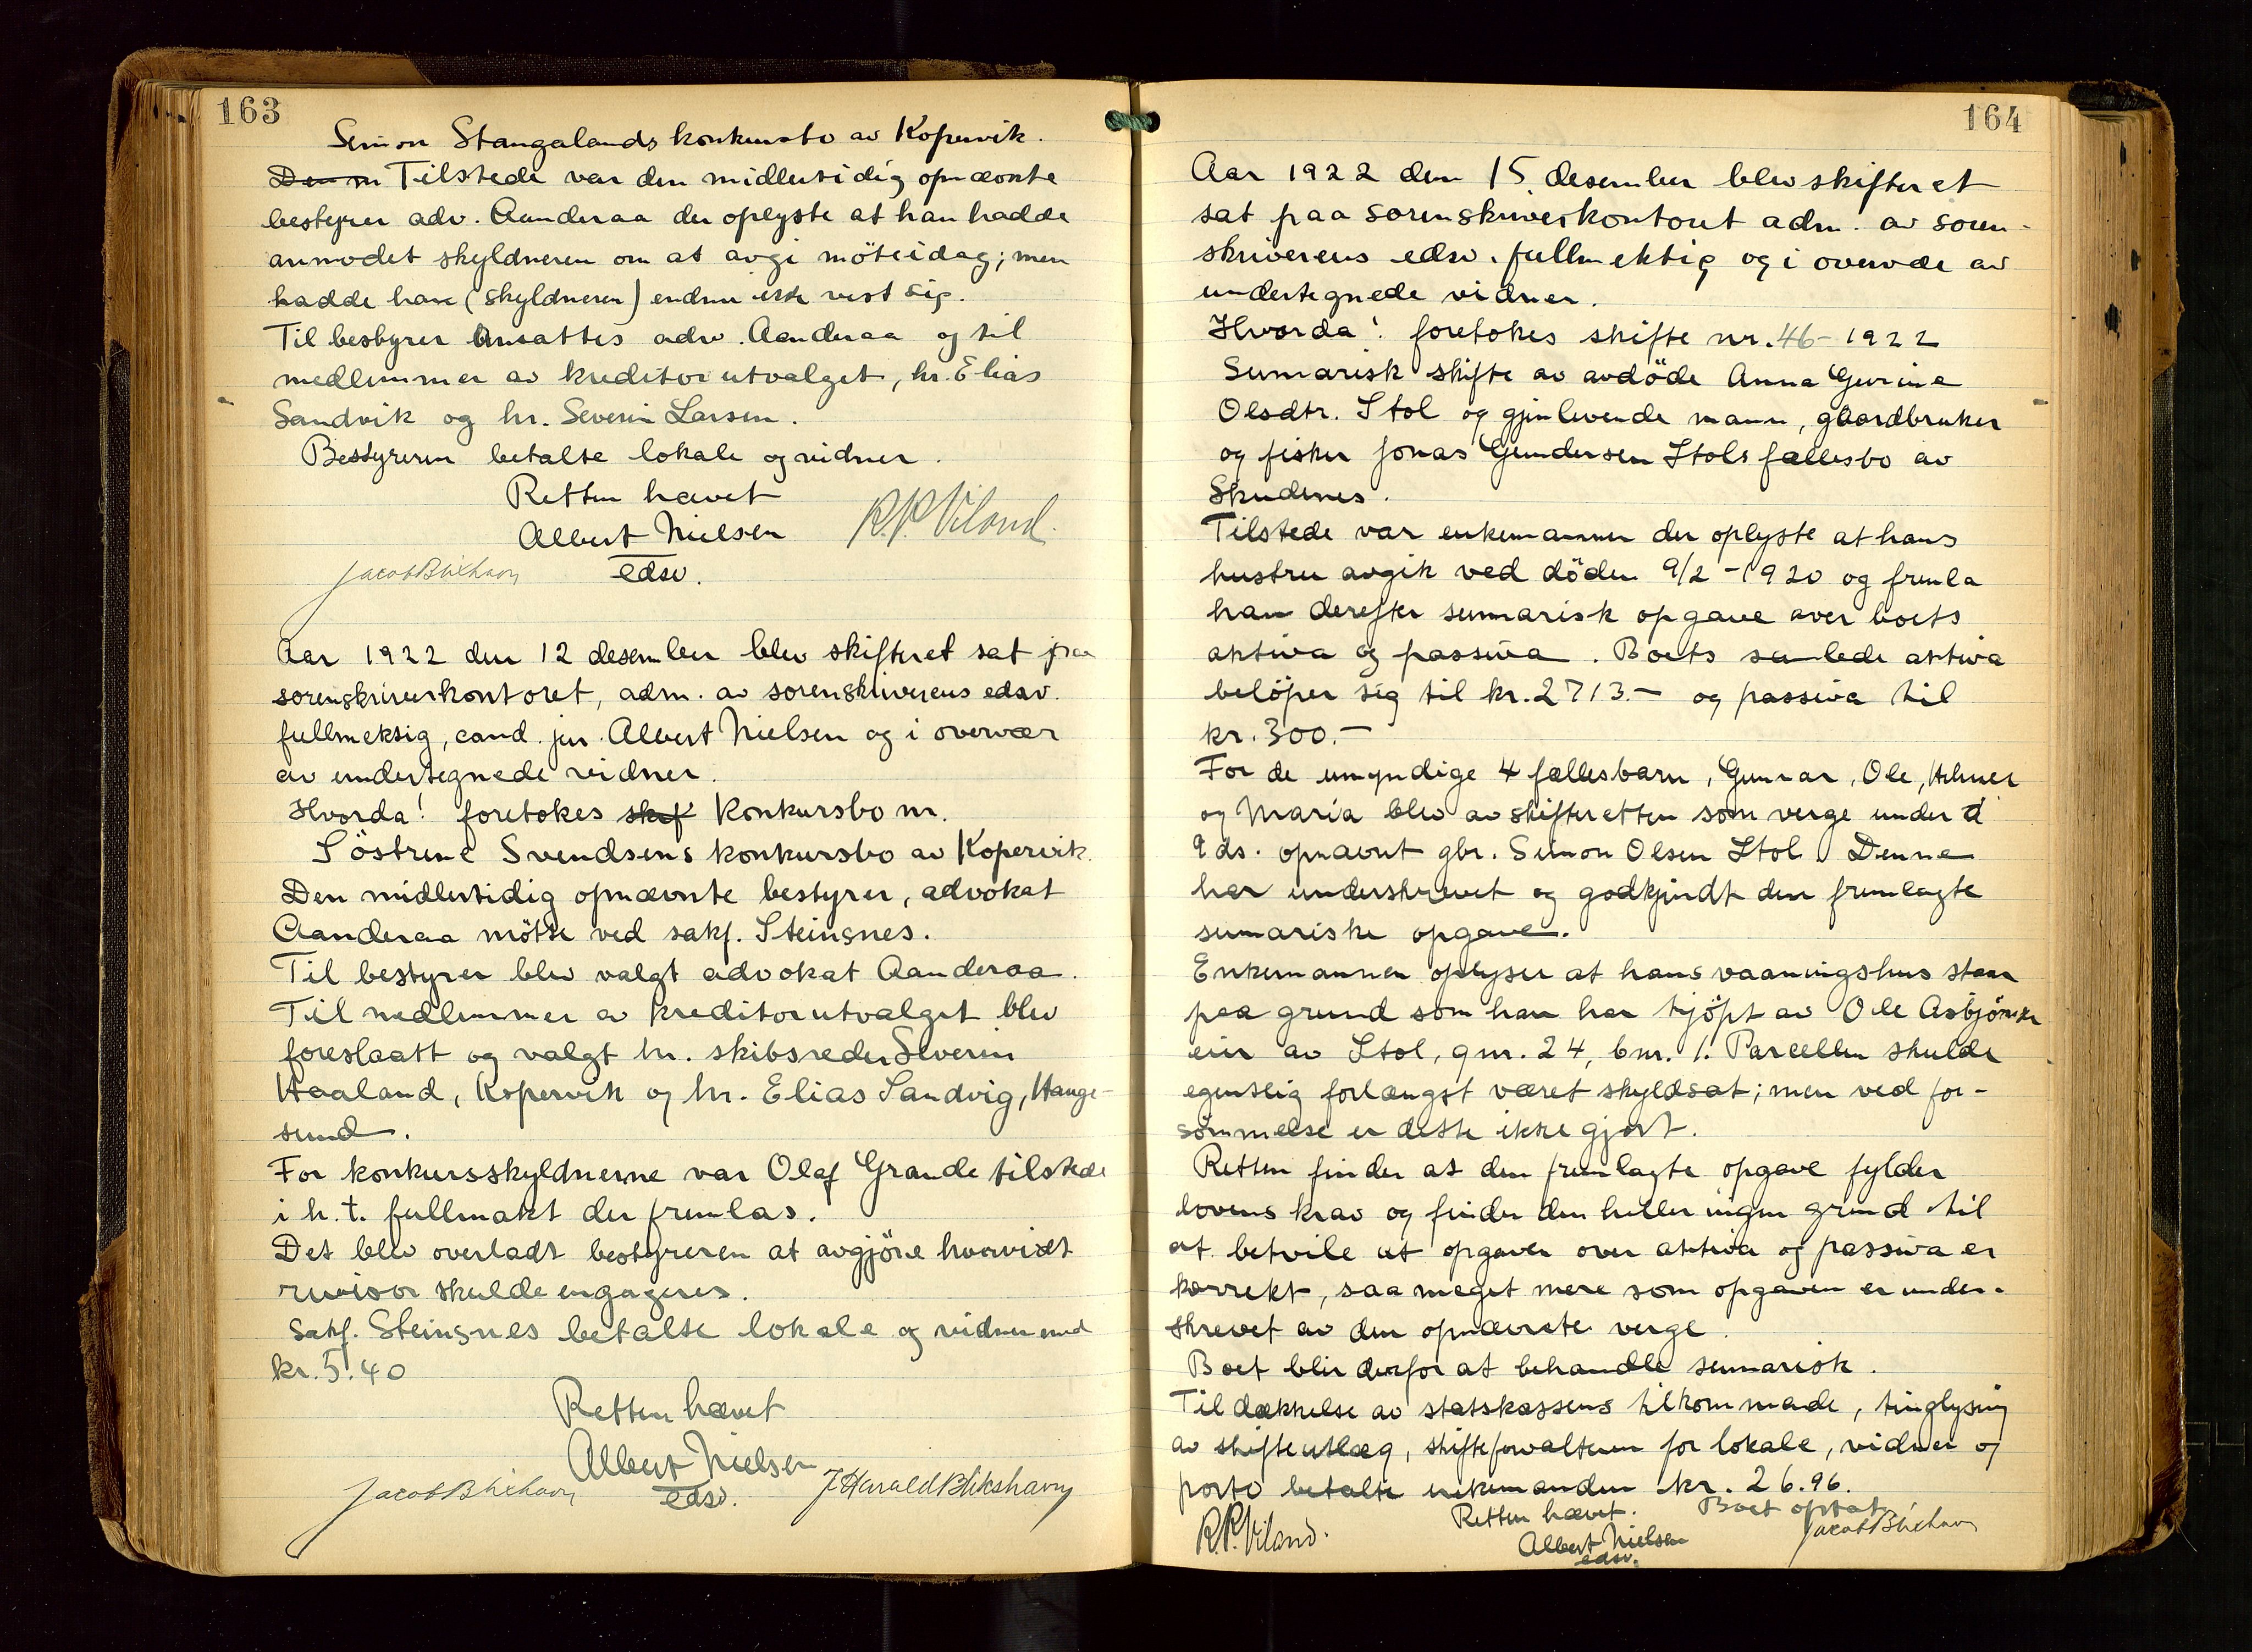 163
Simon Stangalands konkursbo av Kopervik.
Den m Tilstede var den midlertidig opnævnte
bestyrer adv. Aanderaa der oplyste at han hadde
anmodet skyldneren om at avgi möte idag; men
hadde han (skyldneren) endnu ikke vist sig.
Til bestyrer ansattes adv. Aanderaa og til
medlemmer av kreditorutvalget, hr. Elias
Sandvik og hr. Severin Larsen.
Bestyreren betalte lokale og vidner.
Retten hævet
Albert Nielsen R.P. Viland.
Jacob Blikhavn edsv.
Aar 1922 den 12 desember blev skifteret sat paa
sorenskriverkontoret, adm. av sorenskriverens edsv.
fullmektig, cand. jur. Albert Nielsen og i overvær
av undertegnede vidner.
Hvorda! foretokes skif konkursbo nr.
Söstrene Svendsens konkursbo av Kopervik.
Den midlertidig opnævnte bestyrer, advokat
Aanderaa mötte ved sakf. Steinsnes.
Til bestyrer blev valgt advokat Aanderaa.
Til medlemmer av kreditorutvalget blev
foreslaatt og valgt hr. skibsreder Severin
Haaland, Kopervik og hr. Elias Sandvig, Hauge-
sund.
For konkursskyldnerne var Olaf Grande tilstede
i h.t. fullmakt der fremlas.
Det blev overladt bestyreren at avgjöre hvorvidt
revisor skulde engageres.
Sakf. Steinsnes betalte lokale og vidner med
kr. 5.40
Retten hævet
Albert Nielsen
Jacob Blikhavn edsv. J. Harald Blikshavn
164
Aar 1922 den 15. desember blev skifteret
sat paa sorenskriverkontoret adm. av soren-
skriverens edsv. fullmektig og i overvær av
undertegnede vidner.
Hvorda! foretokes skifte nr. 46- 1922
Sumarisk skifte av avdöde Anna Gurine
Olsdtr. Stol og gjenlevende mann, gaardbruker
og fisker Jonas Gundersen Stols fællesbo av
Skudenes.
Tilstede var enkemannen der oplyste at hans
hustru avgik ved döden 9/2 - 1920 og fremla
han derefter sumarisk opgave over boets
aktiva og passiva. Boets samlede aktiva
belöper sig til kr. 2713.- og passiva til
kr. 300.-
For de umyndige 4 fællesbarn, Gunnar, Ole, Helmer
og Maria blev av skifteretten som verge under
9 ds. opnævnt gbr. Simon Olsen Stol. Denne
har underskrevet og godkjendt den fremlagte
sumariske opgave.
Enkemannen oplyser at hans vaaningshus staar
paa grund som han har kjöpt av Ole Asbjörnsen
eier av Stol, gnr. 24, bnr. 1. Parcellen skulde
egentlig forlængst været skyldsat; men ved for-
sömmelse er dette ikke gjort.
Retten finder at den fremlagte opgave fylder
lovens krav og finder den heller ingen grund til
at betvile at opgaven over aktiva og passiva er
korrekt, saa meget mere som opgaven er under-
skrevet av den opnævnte verge.
Boet blir derfor at behandle sumarisk.
Til dækkelse av statskassens tilkommade, tinglysning
av skifteutlæg, skifteforvalteren for lokale, vidner og
porto betalte enkemanden kr. 26.96.
Retten hævet. Boet optat
R.P. Viland. Albert Nielsen Jacob Blikhavn
edsv.